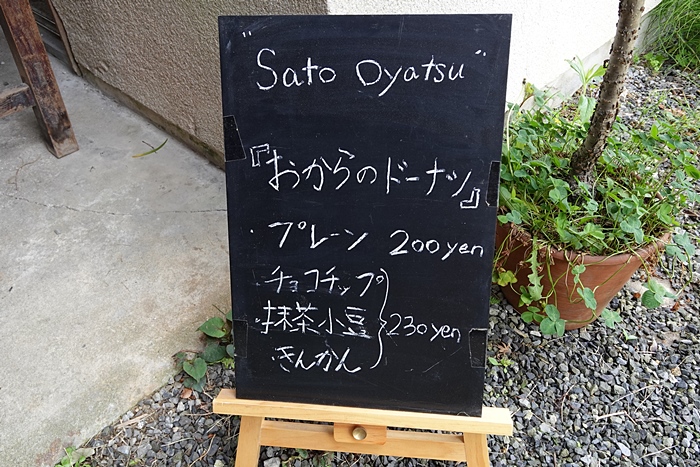 "Sato Oyatsu"
『おからのドーナツ』
・プレーン 200yen
・チョコチップ
・抹茶小豆 230yen
・きんかん